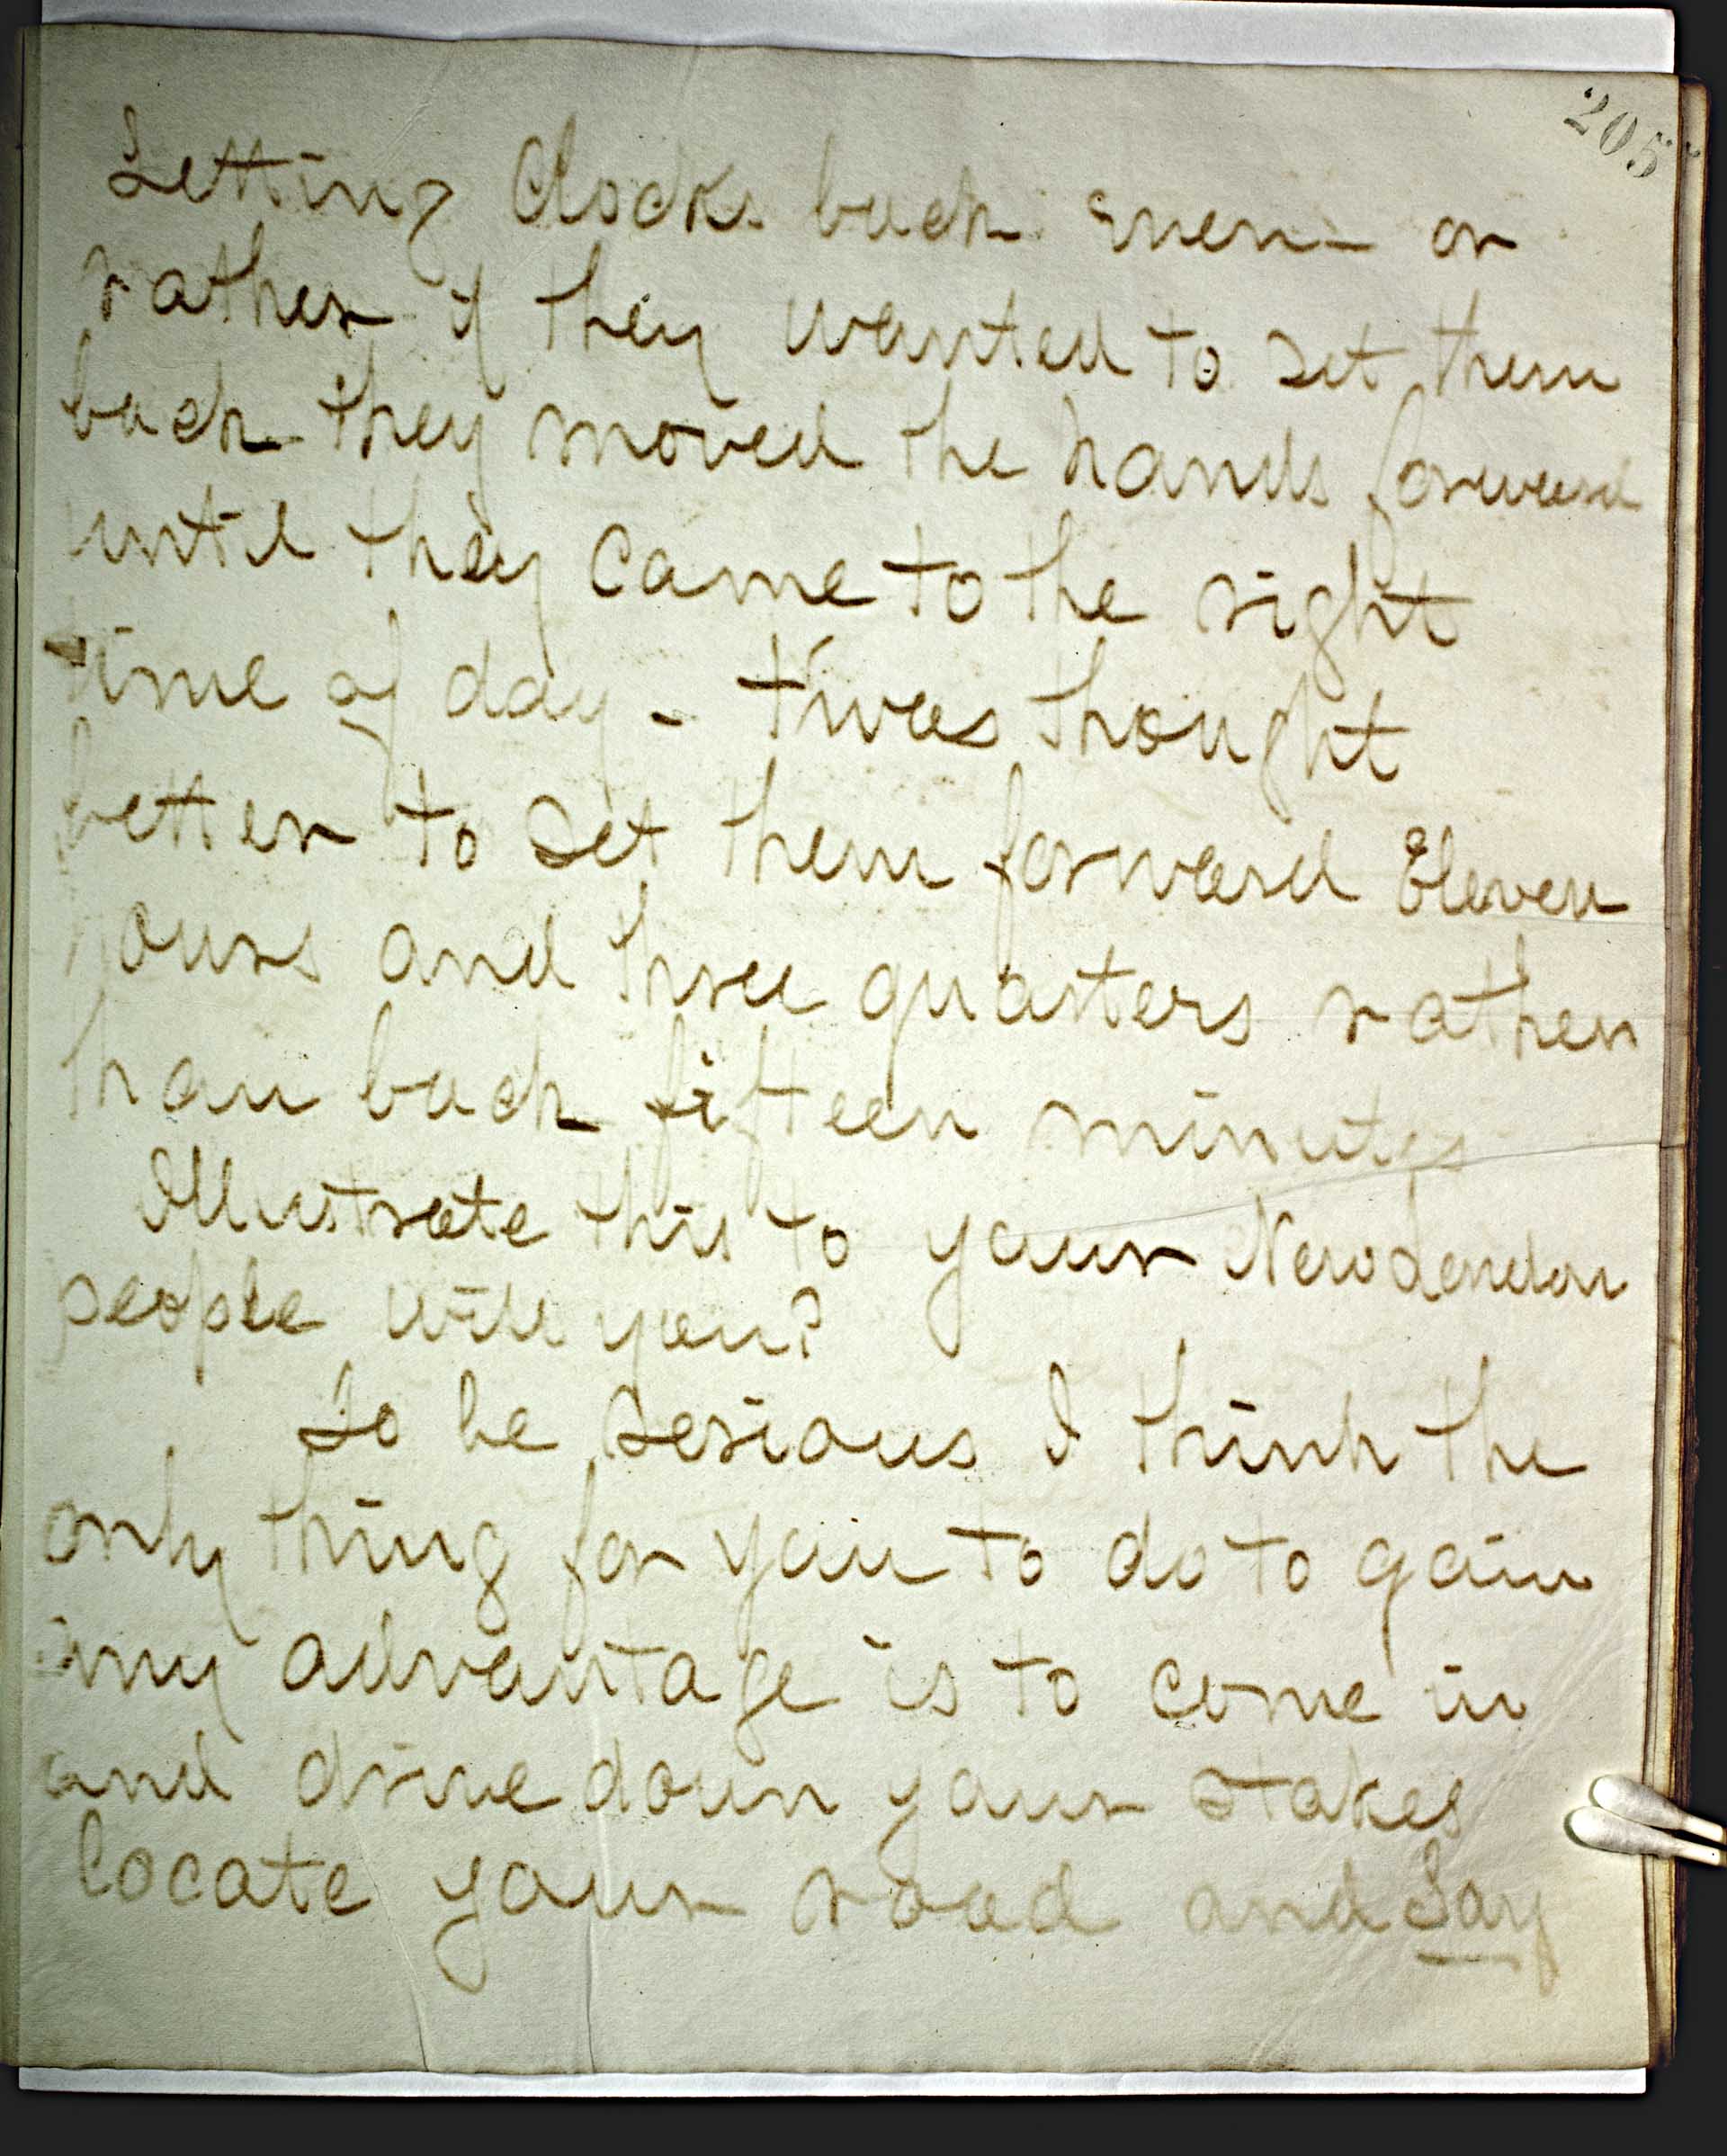 205
Setting Clocks back even - or
rather if they wanted to set them
back they moved the hands forward
until they came to the right
time of day - t'was thought
better to set them forward Eleven
hours and three quarters rather
than back fifteen minutes
Illustrate this to your New London
people will you?
To be serious I think the
only thing for you to do to gain
any advantage is to come in
and drive down your stakes
locate your road and Say